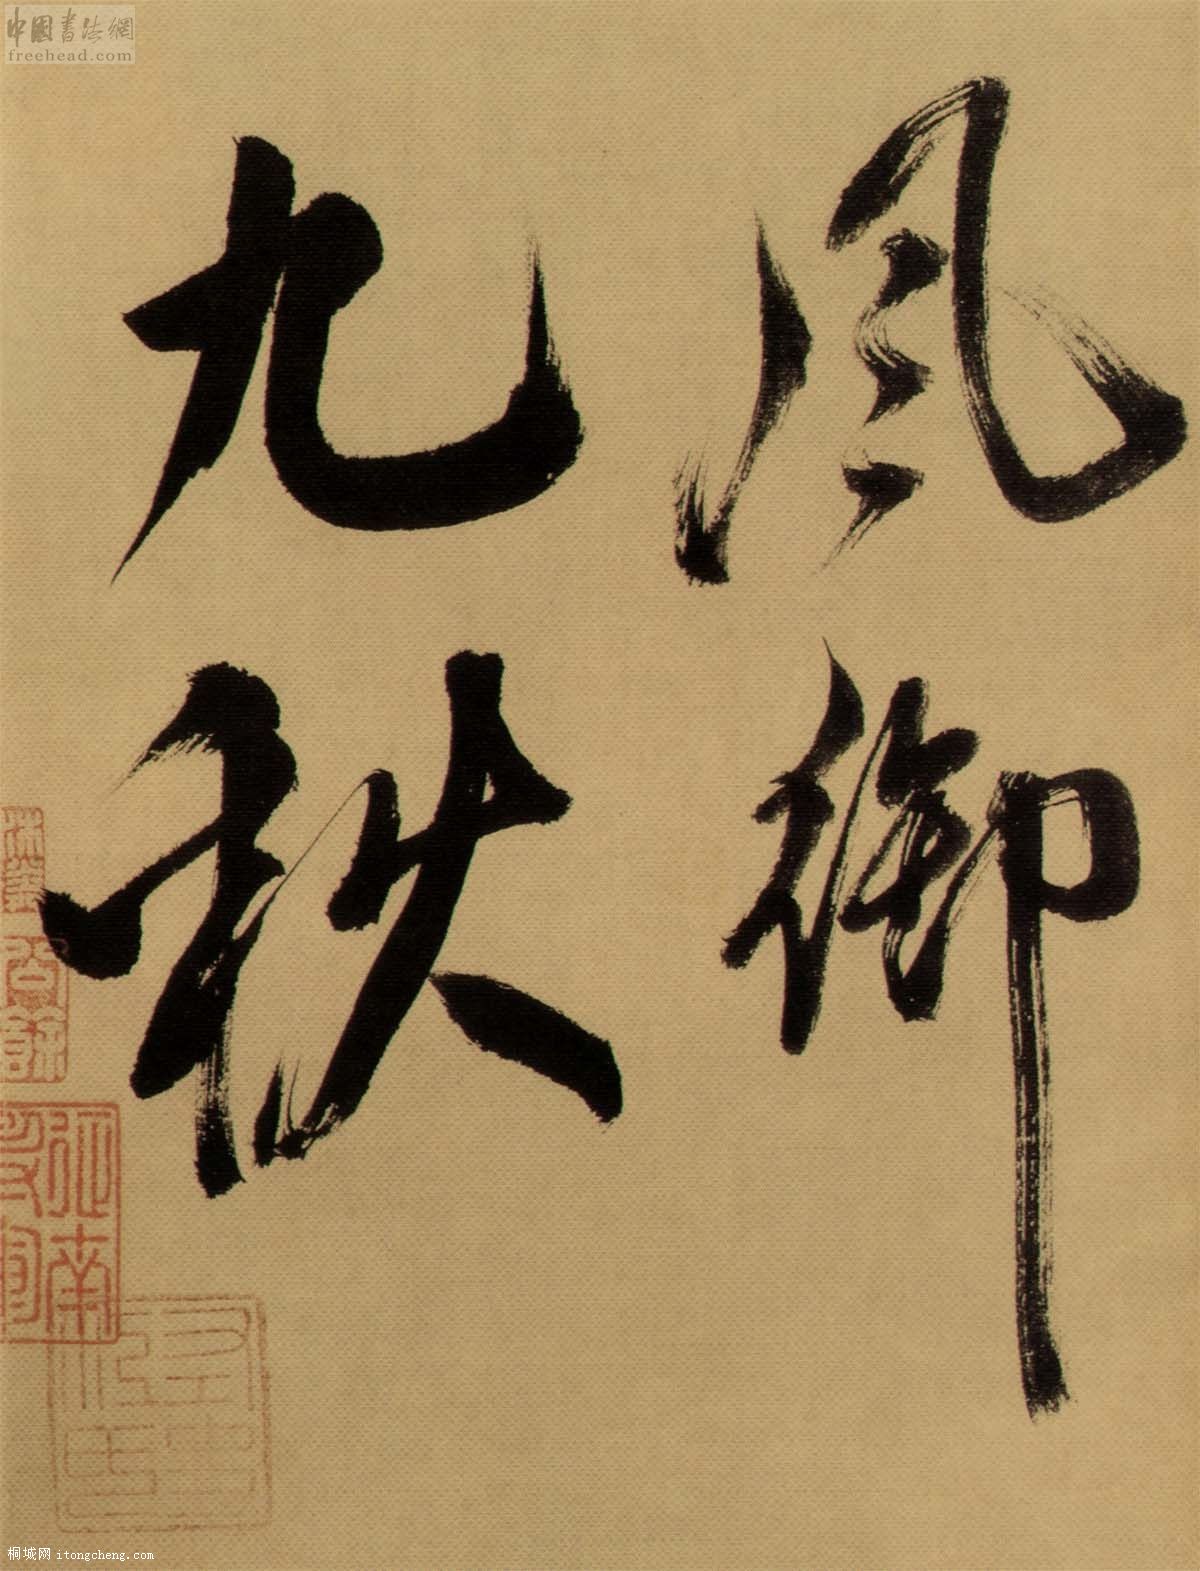 中國書法網
freehead.com
風御
九秋
桐城网 itongcheng.com